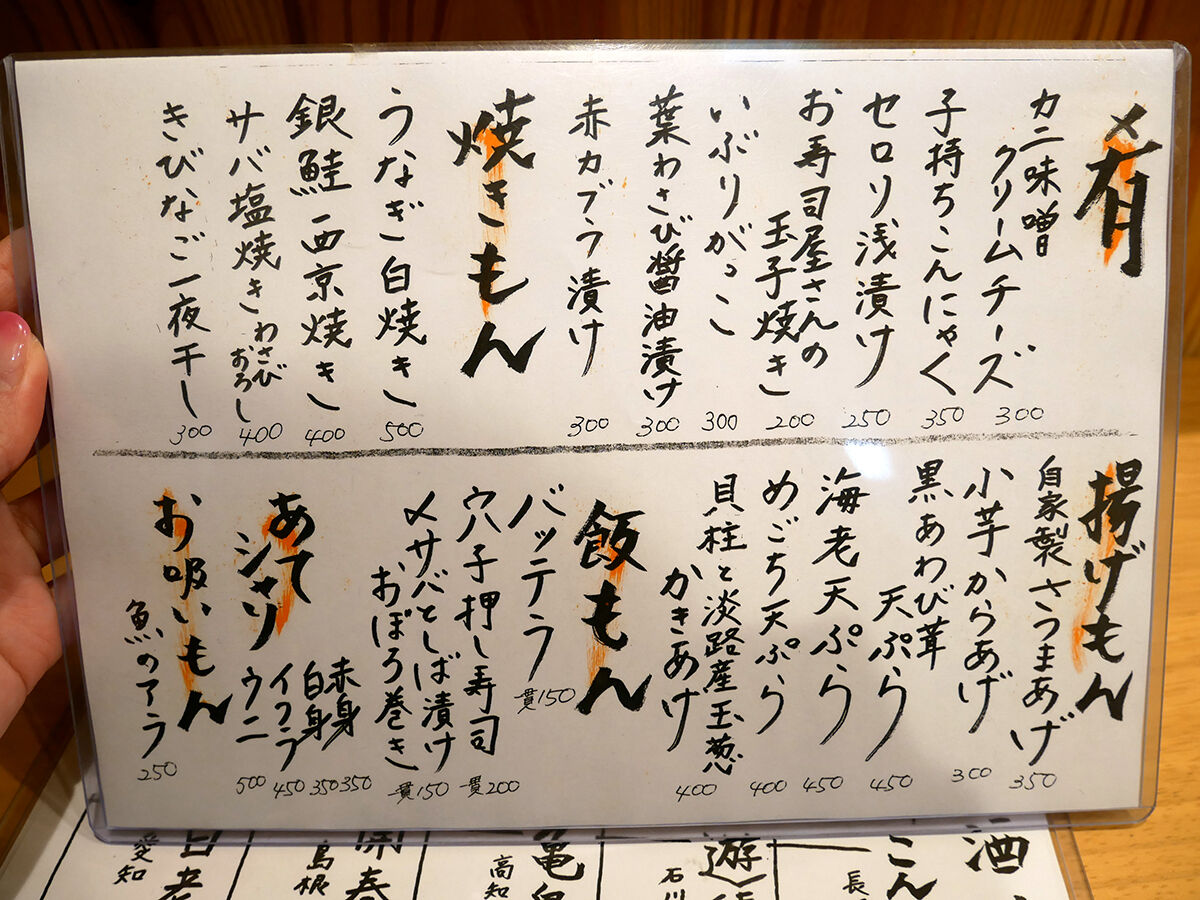 肴
カニ味噌
クリームチーズ
300
子持ちこんにゃく
350
セロリ浅漬け
250
お寿司屋さんの
玉子焼き
200
いぶりがっこ
300
葉わさび醤油漬け
300
赤カブラ漬け
300
焼きもん
うなぎ白焼き
500
銀鮭西京焼き
400
サバ塩焼きわさび
おろし
400
きびなご一夜干し
300
揚げもん
自家製さつまあげ
350
小芋からあげ
300
黒あわび茸
天ぷら
450
海老天ぷら
450
めごち天ぷら
400
貝柱と淡路産玉葱
かきあけ
400
飯もん
バッテラ
一貫150
穴子押し寿司
一貫200
〆サバとしば漬け
おぼろ巻き
一貫150
あて
シャリ
赤身
350
白身
350
イクラ
450
ウニ
500
お吸いもん
魚のアラ
250
酒
こん
長
遊
石川
亀
高知
開春
島根
愛知